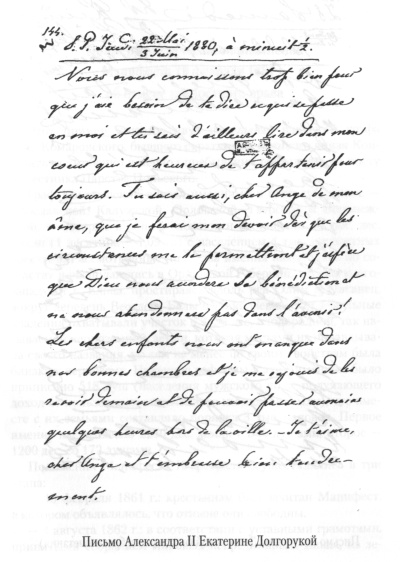 144.
S. P. Jeudi 22 Mai / 3 Juin 1880, à minuit ½.
Nous nous connaissons trop bien pour
que j'aie besoin de te dire ce qui se passe
en moi et tu sais d'ailleurs lire dans mon
cœur qui est heureux de t'appartenir pour
toujours. Tu sais aussi, cher Ange de mon
âme, que je ferai mon devoir dès que les
circonstances me le permettront et j'espère
que Dieu nous accordera Sa bénédiction et
ne nous abandonnera pas dans l'avenir!
Les chers enfants nous ont manqué dans
nos bonnes chambres et je me réjouis de les
revoir demain et de pouvoir passer au moins
quelques heures hors de la ville. – Je t'aime,
cher Ange et t'embrasse bien tendre-
ment.
Письмо Александра II Екатерине Долгорукой